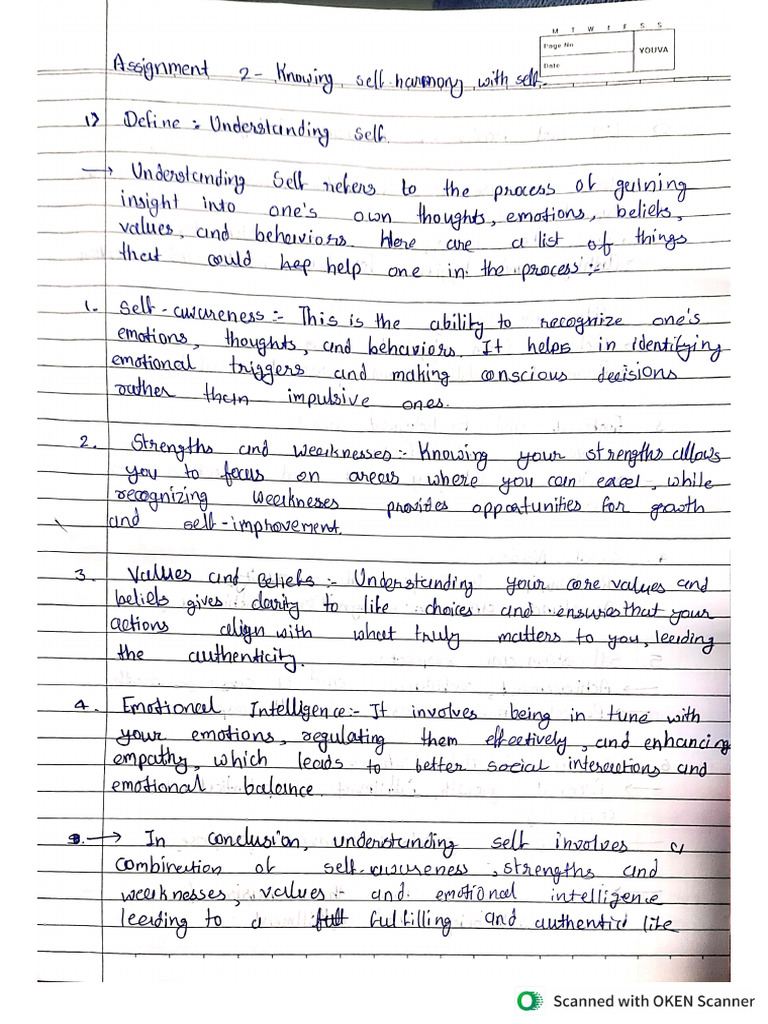 M T W T F S S
Page No
YOUVA
Date
Assignment 2 - Knowing self harmony with self.
1) Define : Understanding self.
→ Understanding Self refers to the process of gaining
insight into one's own thoughts, emotions, beliefs,
values, and behaviors. Here are a list of things
that could hep help one in the process :-
1. Self-awareness :- This is the ability to recognize one's
emotions, thoughts, and behaviors. It helps in identifying
emotional triggers and making conscious decisions
rather than impulsive ones.
2. Strengths and weaknesses :- Knowing your strengths allows
you to focus on areas where you can excel, while
recognizing weaknesses provides opportunities for growth
and self-improvement.
3. Values and Beliefs :- Understanding your core values and
beliefs gives clarity to life choices and ensures that your
actions align with what truly matters to you, leading
the authenticity.
4. Emotional Intelligence :- It involves being in tune with
your emotions, regulating them effectively, and enhancing
empathy, which leads to better social interactions and
emotional balance.
→ In conclusion, understanding self involves a
combination of self-awareness, strengths and
weaknesses, values and emotional intelligence
leading to a fulfilling and authentic life
Scanned with OKEN Scanner